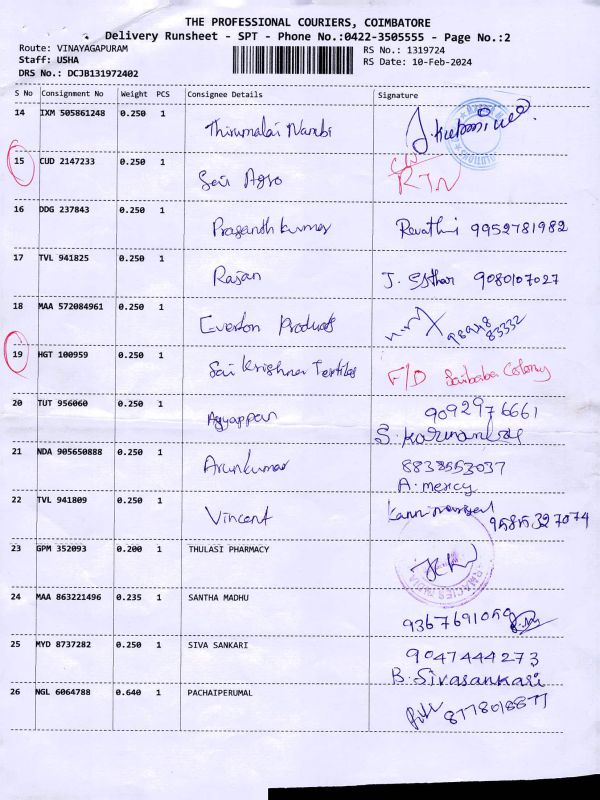 THE PROFESSIONAL COURIERS, COIMBATORE
Delivery Runsheet - SPT - Phone No.:0422-3505555 - Page No.:2
Route: VINAYAGAPURAM RS No.: 1319724
Staff: USHA RS Date: 10-Feb-2024
DRS No.: DCJB131972402
S No Consignment No Weight PCS Consignee Details Signature
14 IXM 505861248 0.250 1 Thirumalai Nambi
15 CUD 2147233 0.250 1 Sai Agro RTN
16 DDG 237843 0.250 1 Prasanth kumar Revathi 9952781982
17 TVL 941825 0.250 1 Rajan J. Esther 9080107027
18 MAA 572084961 0.250 1 Everton Products
19 HGT 100959 0.250 1 Sai Krishna Textiles F/D Saibaba Colony
20 TUT 956060 0.250 1 Ayyappan 9092976661
21 NDA 905650888 0.250 1 Arunkumar 8838553037
A. mercy
22 TVL 941809 0.250 1 Vincent 9585327074
23 GPM 352093 0.200 1 THULASI PHARMACY
24 MAA 863221496 0.235 1 SANTHA MADHU 9367691059
25 MYD 8737282 0.250 1 SIVA SANKARI 9047444273
B. Sivasankari
26 NGL 6064788 0.640 1 PACHAIPERUMAL 8778018877